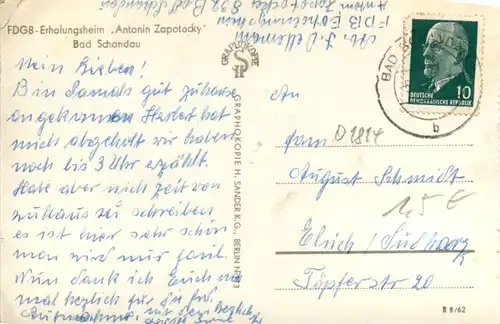 FDGB-Erholungsheim „Antonin Zapotocky"
Bad Schandau
Mein Lieben!
Bin Damals gut zuhause
angekommen Herbert hat
mich abgeholt wir haben
noch bis 3 Uhr erzählt.
Habe aber nicht zeit von
zuhaus zu schreiben
es ist hier sehr schön
man wird nur faul.
Nun dank ich Euch noch
mal herzlich für die frdl.
Aufnahme
GRAPHOKOPIE
SH
GRAPHOKOPIE H. SANDER K.G., BERLIN
Abs. J.
FDGB Erholungsheim
Bad Schandau
BAD SCHANDAU
b
10
DEUTSCHE
DEMOKRATISCHE REPUBLIK
An
Fam
D1814
August Schmidt
1,5 €
Elrich/Südharz
Töpferstr 20
B 8/62